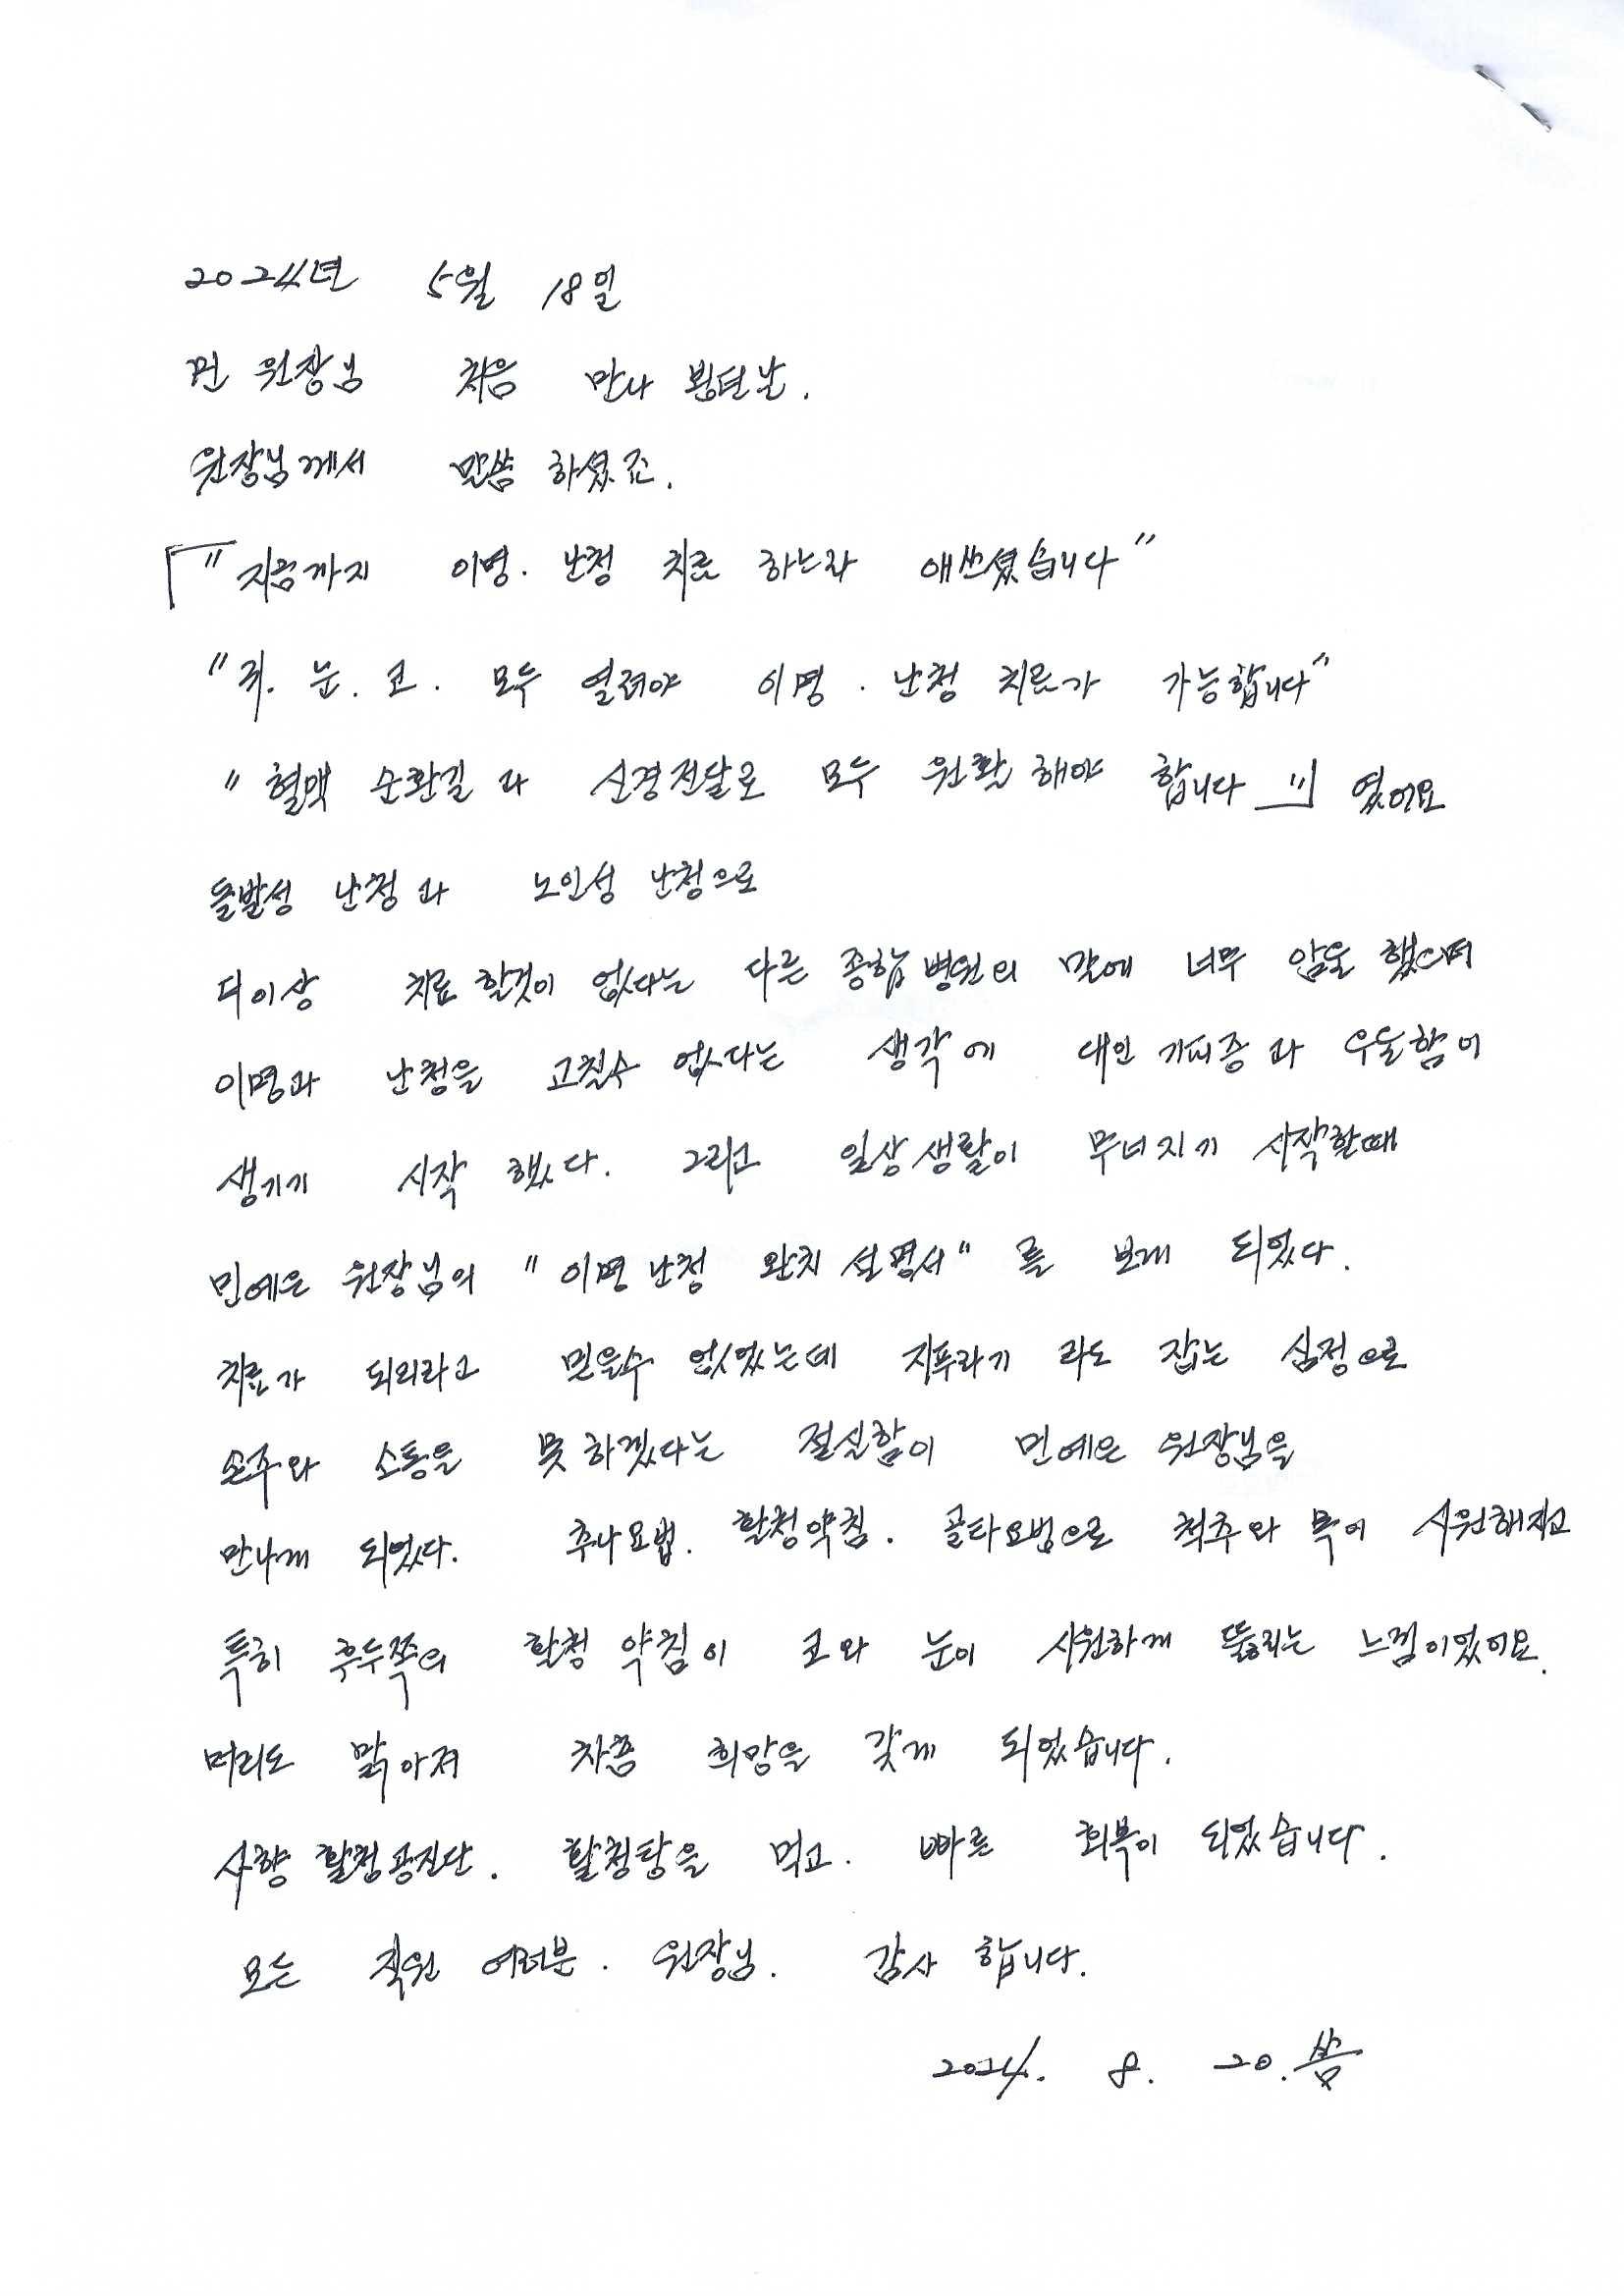 2024년 5월 18일
민 원장님 처음 만나 뵙던날.
원장님께서 말씀 하셨죠.
「"지금까지 이명. 난청 치료 하느라 애쓰셨습니다"
"귀. 눈. 코. 모두 열려야 이명. 난청 치료가 가능합니다"
"혈액 순환길과 신경전달로 모두 원활해야 합니다"」 였어요
돌발성 난청과 노인성 난청으로
더이상 치료 할것이 없다는 다른 종합병원의 말에 너무 암울 했으며
이명과 난청을 고칠수 없다는 생각에 대인 기피증과 우울함이
생기기 시작 했다. 그리고 일상생활이 무너지기 시작할때
민예은 원장님의 "이명난청 완치 설명서"를 보게 되었다.
치료가 되리라고 믿을수 없었는데 지푸라기 라도 잡는 심정으로
손주와 소통을 못하겠다는 절실함이 민예은 원장님을
만나게 되었다. 추나요법. 활청약침. 골타요법으로 척추와 목이 시원해지고
특히 후두쪽의 활청 약침이 코와 눈이 시원하게 뚫리는 느낌이었어요.
머리도 맑아져 차츰 희망을 갖게 되었습니다.
사향 활청공진단. 활청탕을 먹고. 빠른 회복이 되었습니다.
모든 직원 여러분. 원장님. 감사 합니다.
2024. 8. 20. 씀